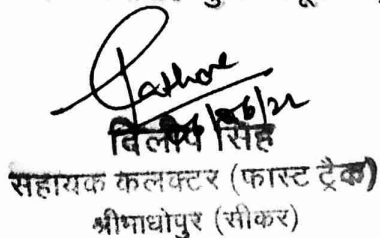 Rathore
/06/22
दिलीप सिंह
सहायक कलक्टर (फास्ट ट्रैक)
श्रीमाधोपुर (सीकर)